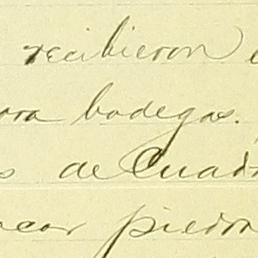 recibieron
ara bodegas.
s de Cuadr
acar piedra